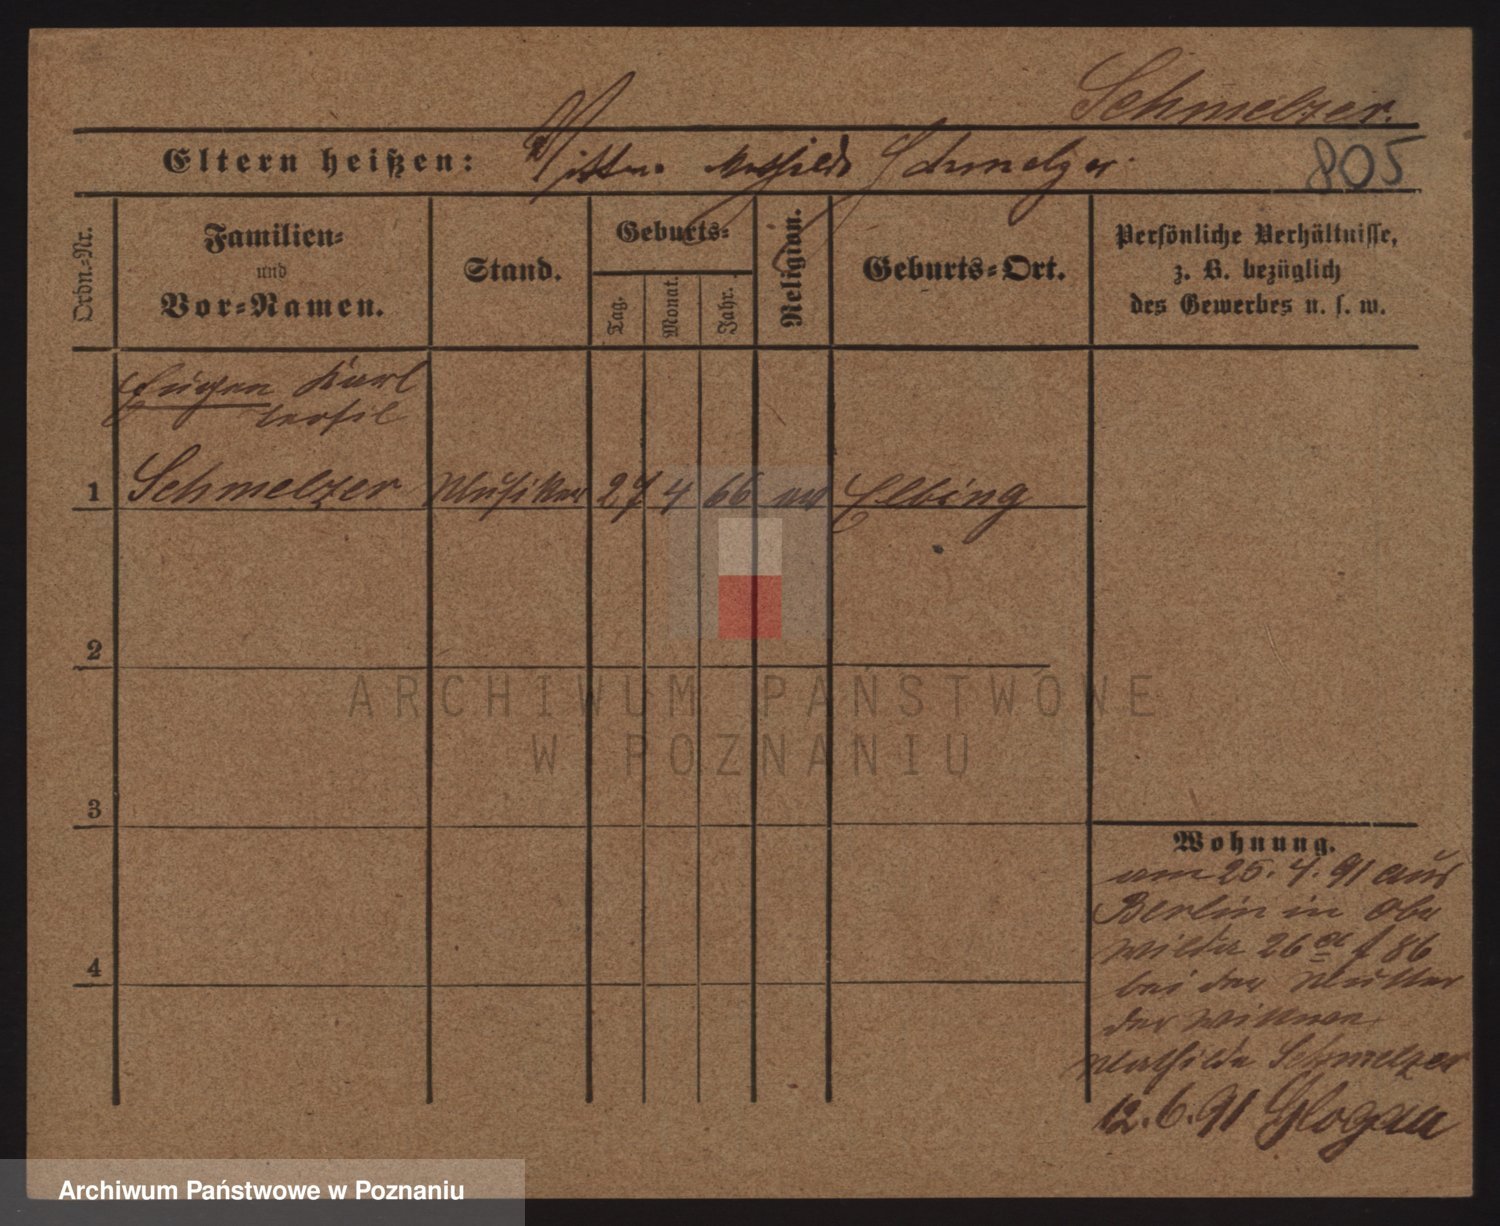 Schmelzer.
Eltern heißen: Wittwe Mathilde Schmelzer
805
Ordn.-Nr.
Familien-
und
Vor-Namen.
Stand.
Geburts-
Tag.
Monat.
Jahr.
Religion.
Geburts-Ort.
Persönliche Verhältnisse,
z. B. bezüglich
des Gewerbes u. s. w.
Eugen Karl
1 Schmelzer Musiker 27 4 66 Elbing
2
3
4
Wohnung.
am 25. 4. 91 aus
Berlin in Ober
wilda 26 f 86
bei der Mutter
der Wittwe
Mathilde Schmelzer
12. 6. 91 Glogau
ARCHIWUM PAŃSTWOWE
W POZNANIU
Archiwum Państwowe w Poznaniu